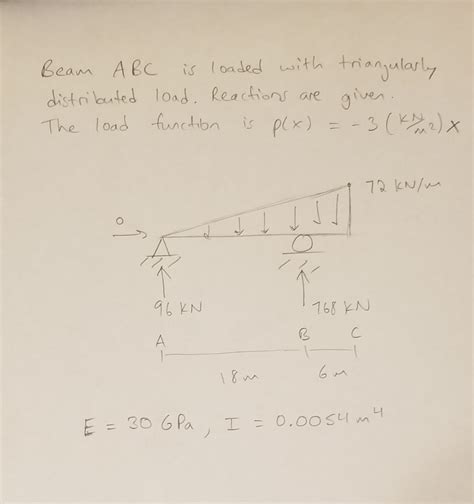 Beam ABC is loaded with triangularly
distributed load. Reactions are given.
The load function is p(x) = -3 (kN/m2) x
72 kN/m
0
96 kN
768 kN
A
B
C
18m
6m
E = 30 GPa, I = 0.0054 m⁴